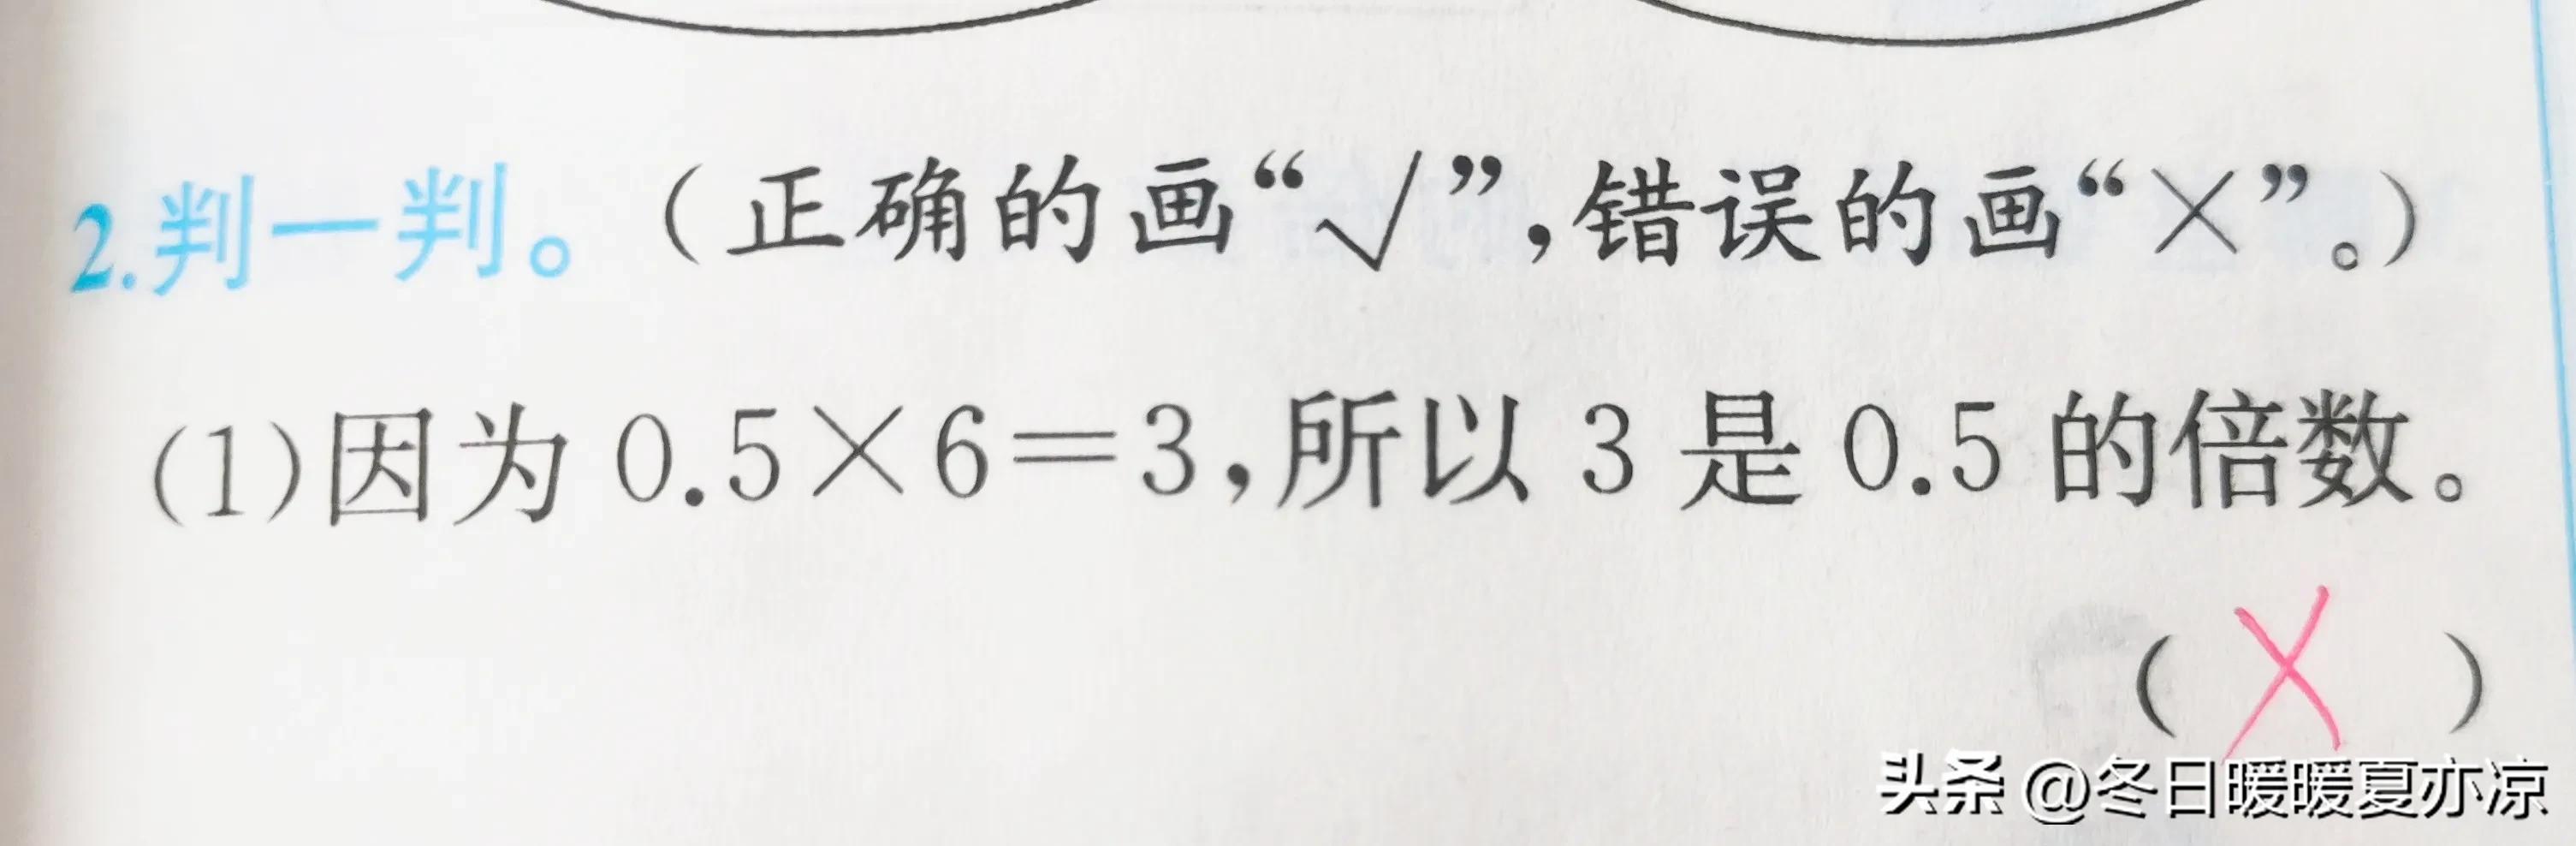 2.判一判。（正确的画“√”，错误的画“×”。）
(1)因为 0.5×6=3，所以 3 是 0.5 的倍数。
（ × ）
头条 @冬日暖暖夏亦凉